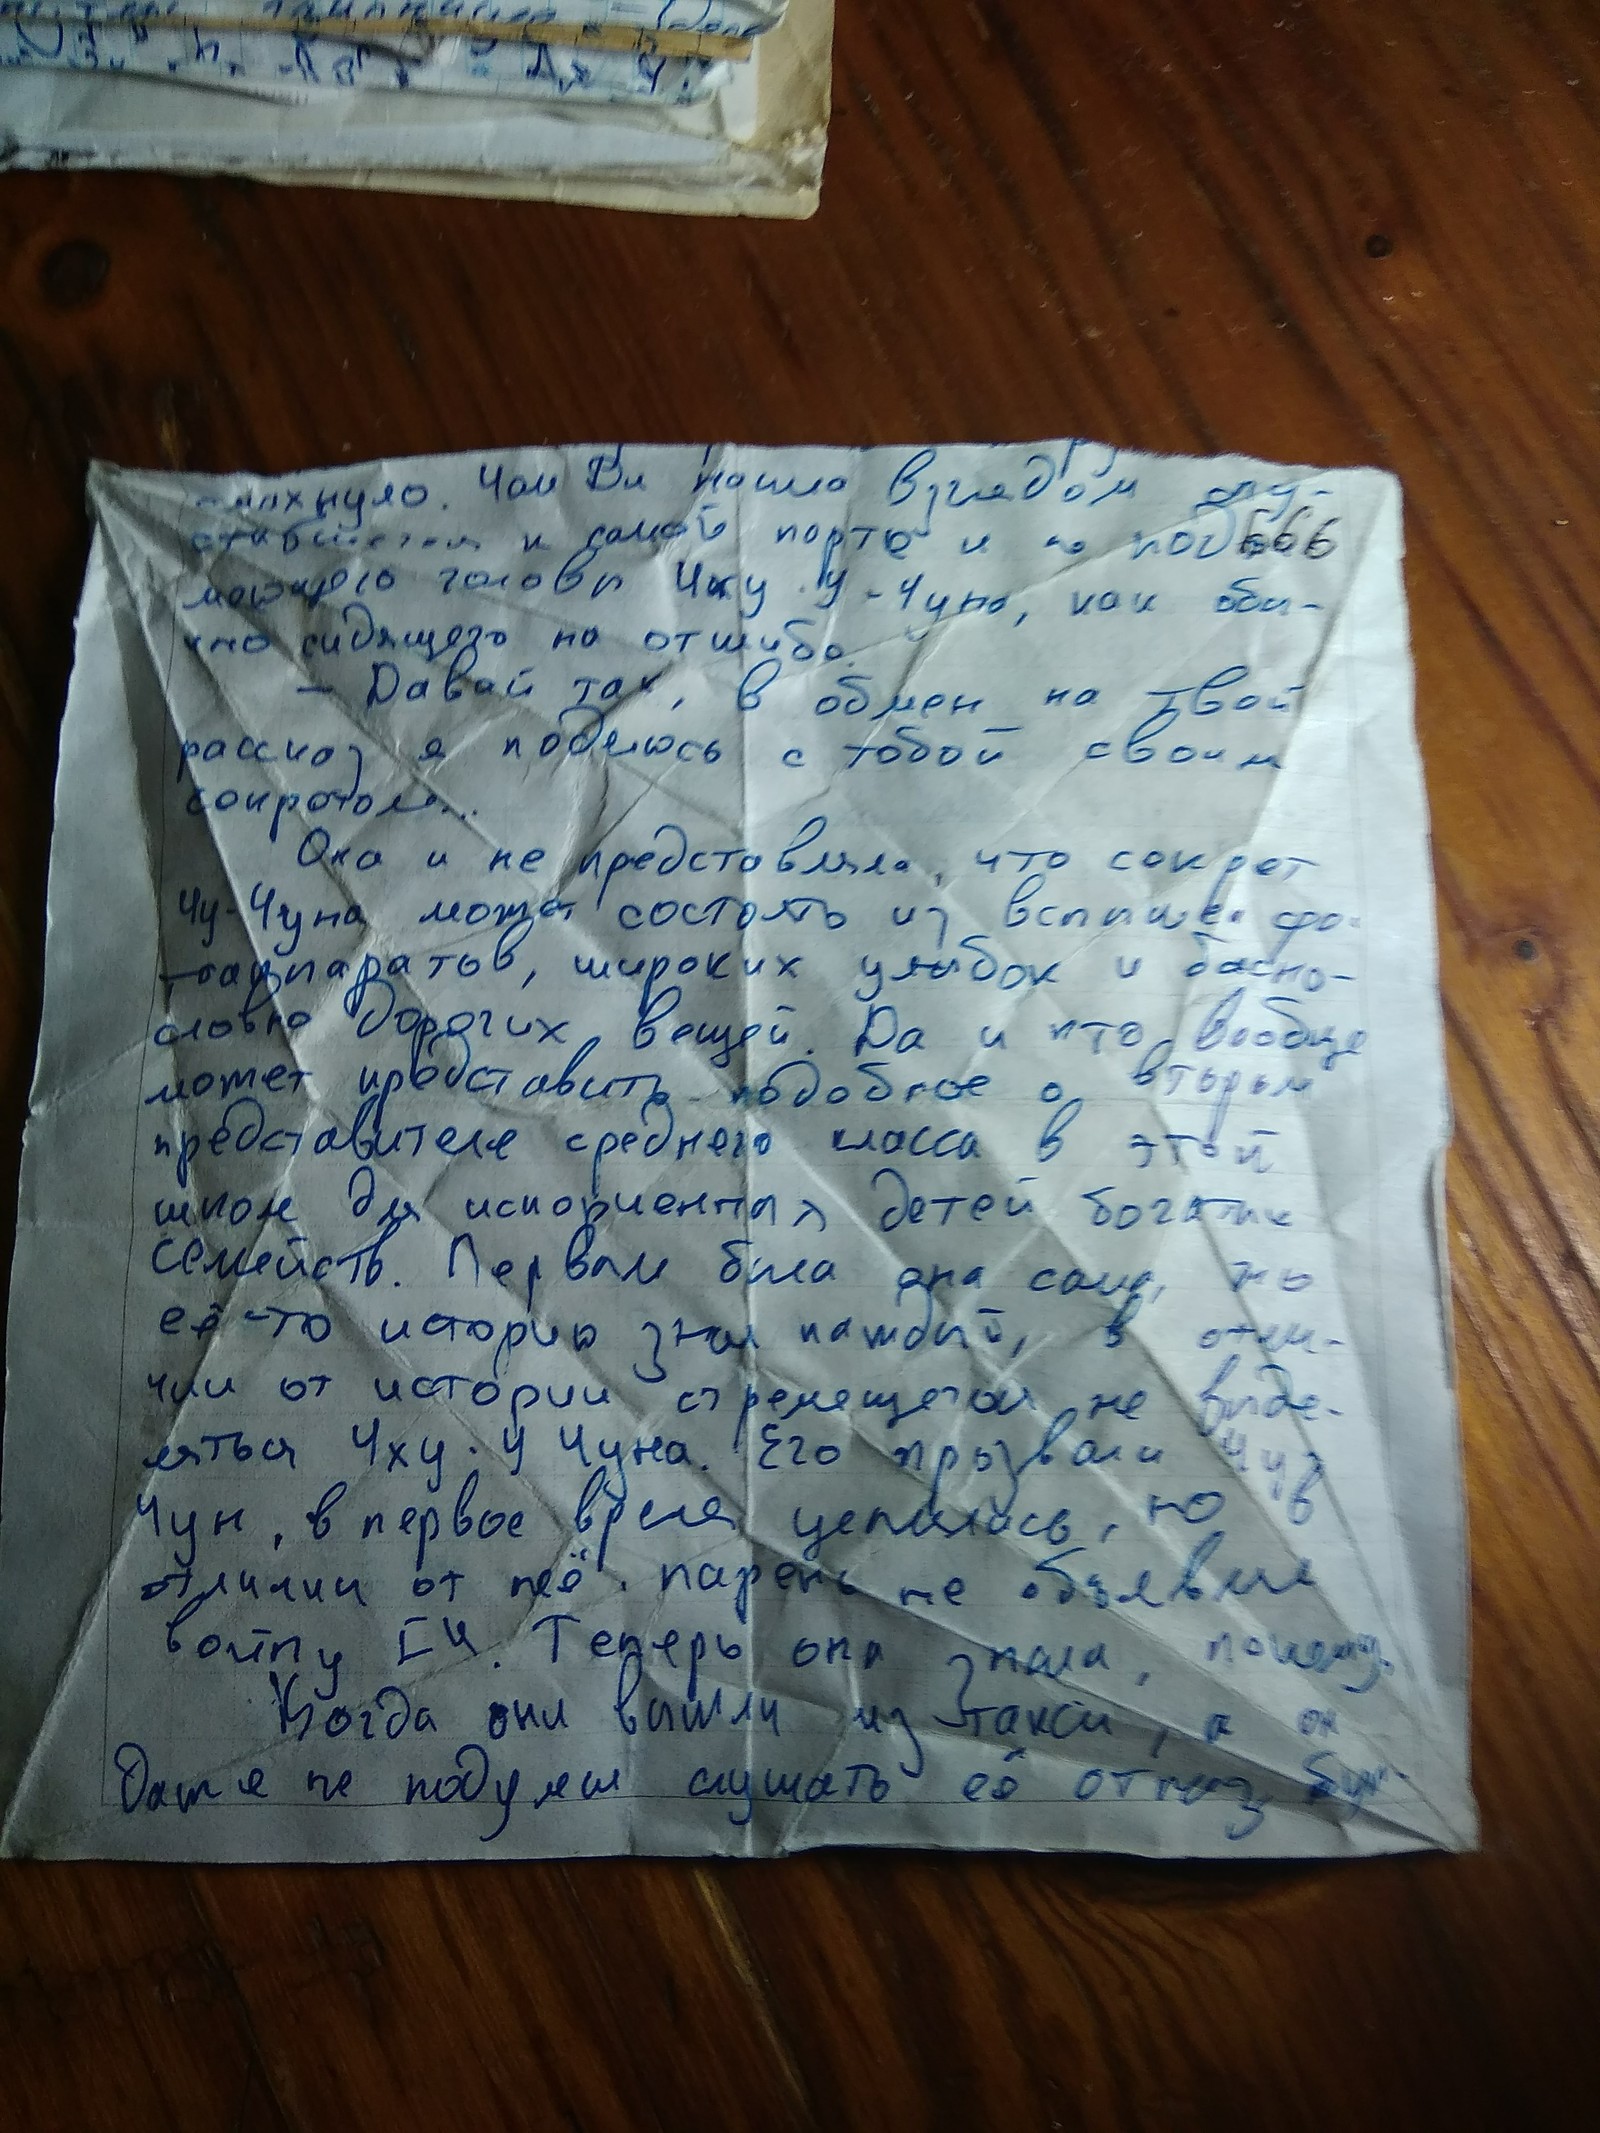 Чан Ди нашла взглядом опу-
к самой парте и не под
666
мающего головы Чху У-Чуна, как обы-
чно сидящего на отшибе.
– Давай так, в обмен на твой
рассказ я поделюсь с тобой своим
секретом...
Она и не представляла, что секрет
Чу-Чуна может состоять из вспышек фо-
тоаппаратов, широких улыбок и басно-
словно дорогих вещей. Да и кто вообще
может представить подобное о втором
представителе среднего класса в этой
школе для испорченных детей богатых
семейств. Первым была она сама, но
её-то историю знал каждый, в отли-
чии от истории стремящегося не выде-
ляться Чху У Чуна. Его прозвали Чу
Чун, в первое время цеплялись, но в
отличии от неё парень не объявил
войну F4. Теперь она знала, почему.
Когда они вышли из такси, а он
даже не подумал слушать её отказ